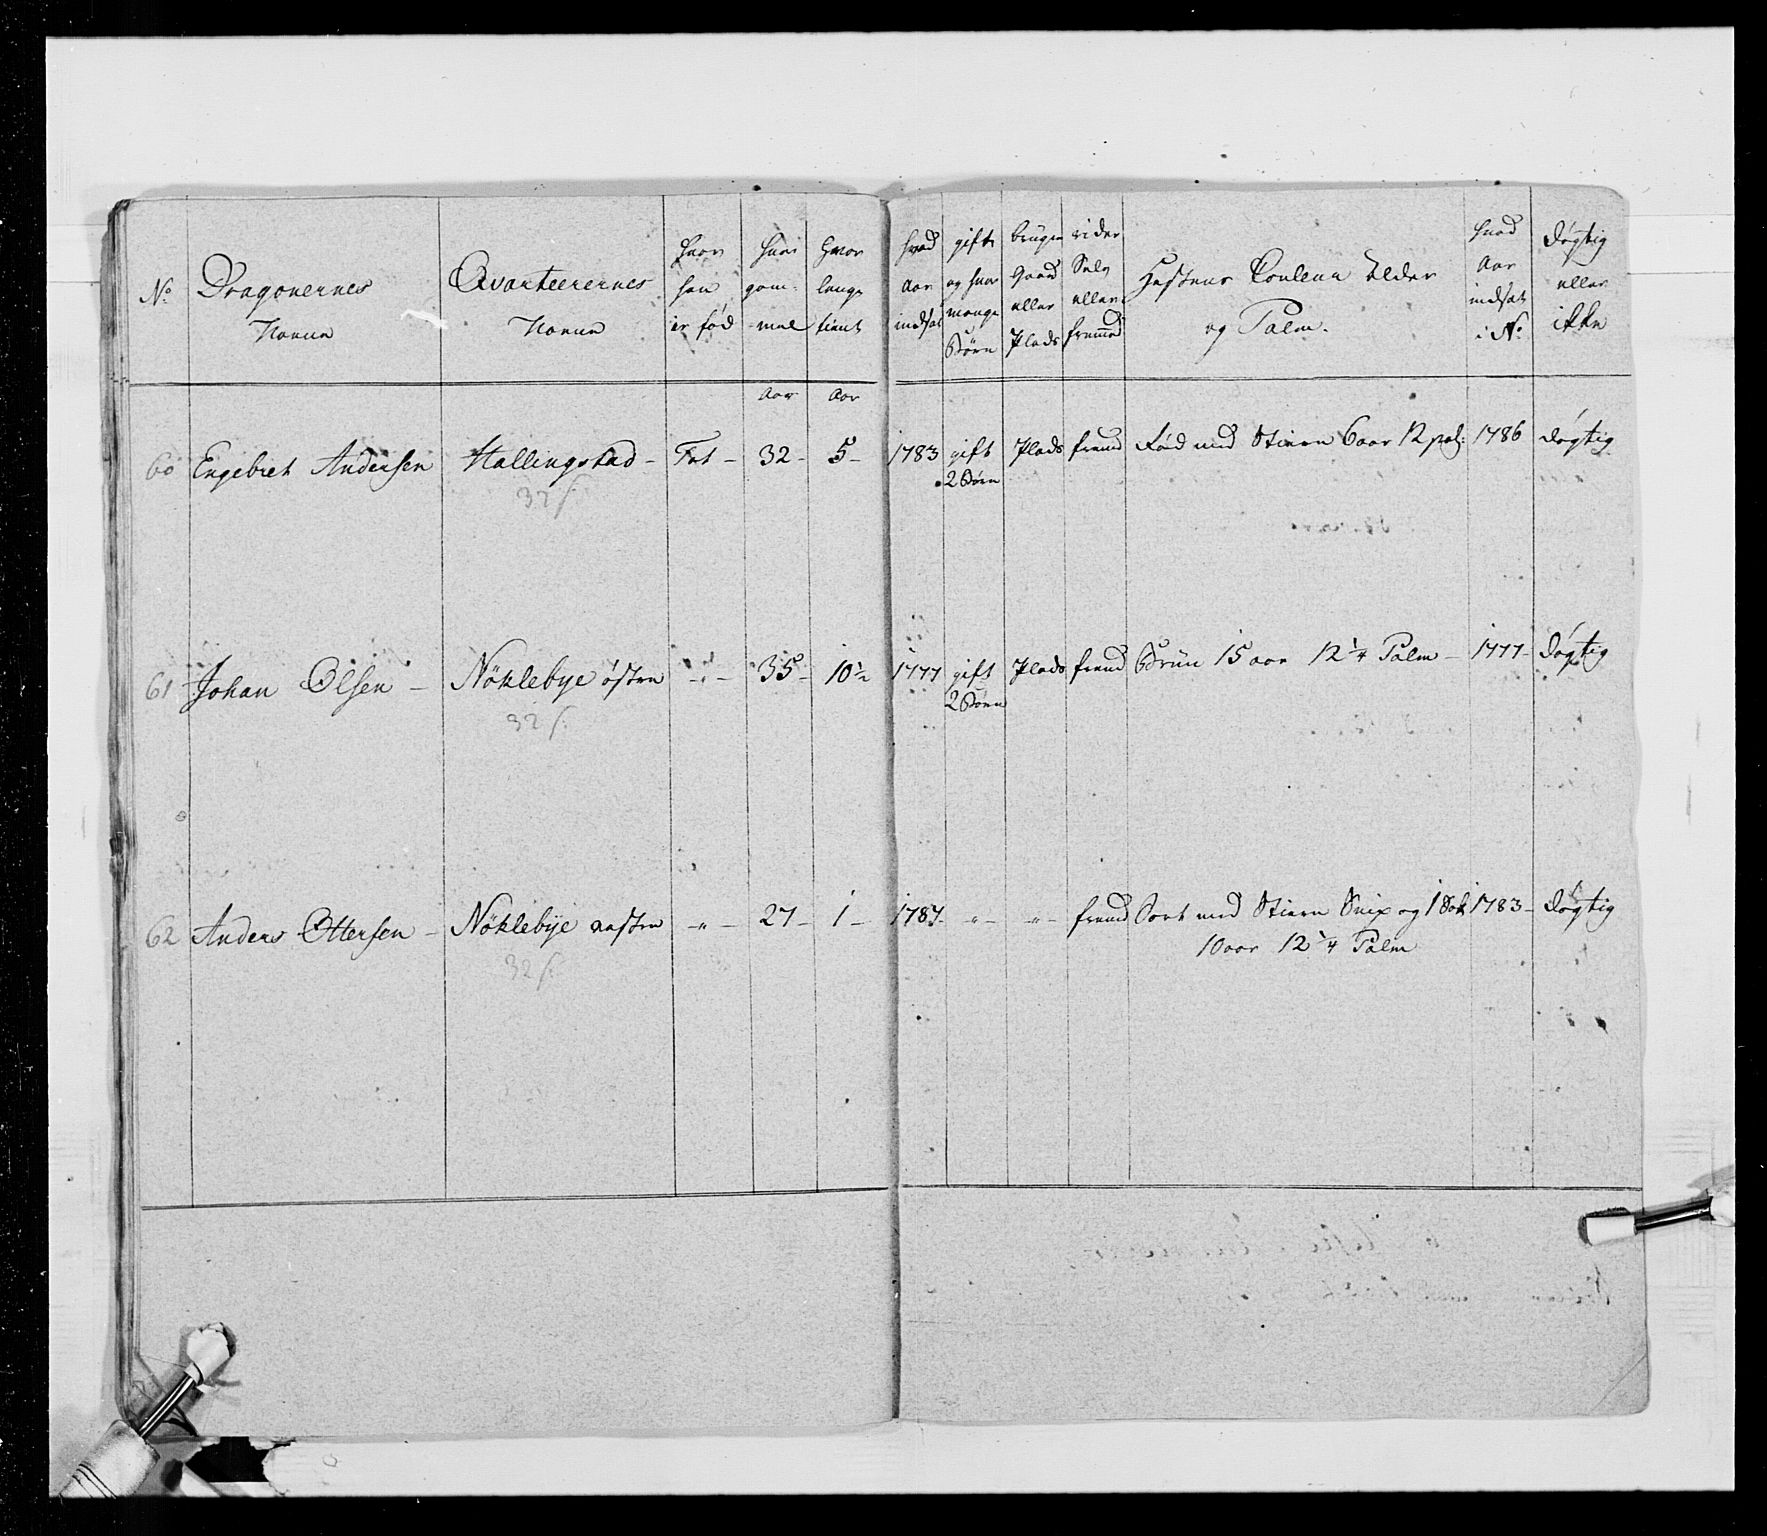 No. Dragonernes Navne
Qvarteerernes Navne
hvor han er fød
hvor gam- mel
hvor længe tient
hvad aar indsat
gift og hvor mange Børn
bruger Gaard eller Plads
rider Selv eller fremmed
Hestens Couleur Alder og Palm.
hvad Aar indsat i No.
døgtig eller ikke
Aar Aar
60 Engebret Andersen Hallingstad – Tot – 32 – 5 – 1783 gift Plads fremd Rød med Stiern 6 aar 12 pal: 1786 døgtig
2 Børn
32 f.
61 Johan Olsen – Nöklebye østre – " – 35 – 10½ 1777 gift Plads fremd Brün 15 aar 12¼ Palm – 1777 – døgtig
2 Børn
32 f.
62 Anders Ottersen – Nöklebye vestre – " – 27 – 1 – 1787 – " – – " – fremd Sort med Stiern Snip og 1 Sok 1783 – døgtig
10 aar 12¼ Palm
32 f.